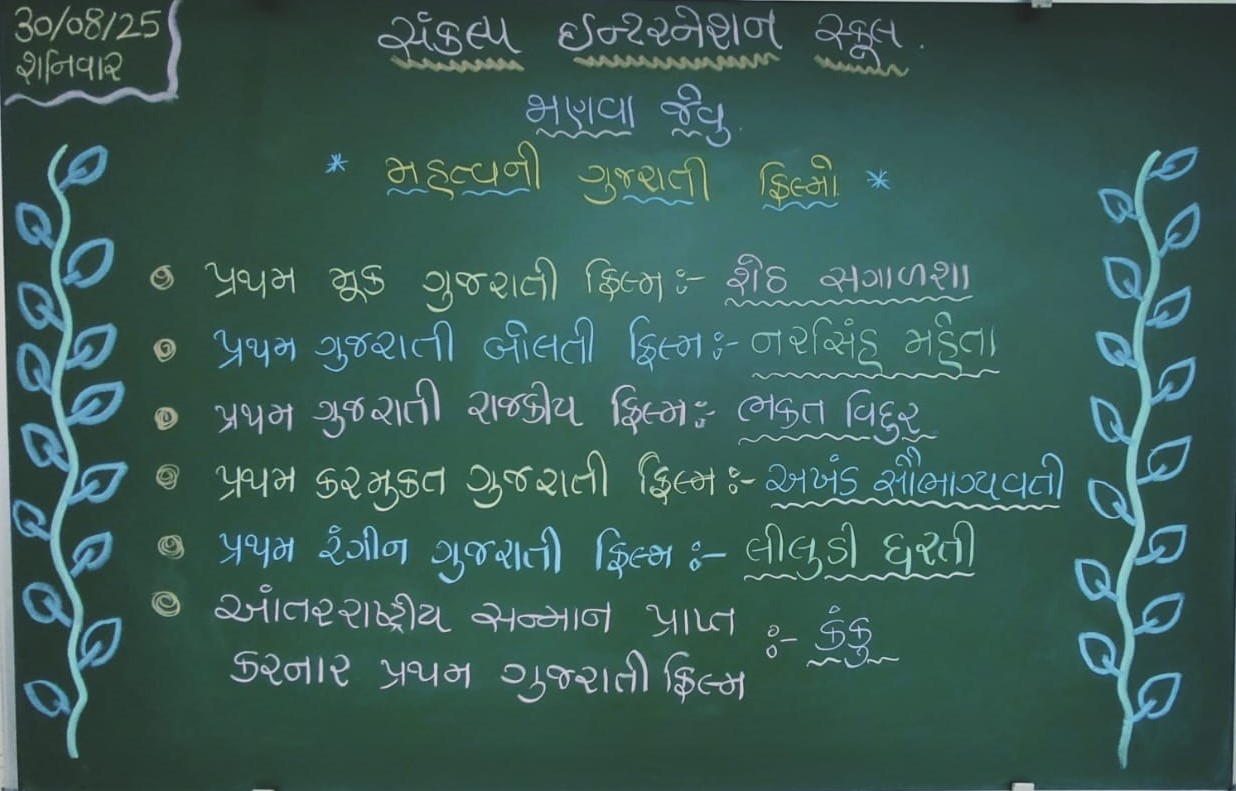 30/08/25
શનિવાર
સંકલ્પ ઈન્ટરનેશન સ્કૂલ.
ભણવા જેવુ
* મહત્વની ગુજરાતી ફિલ્મો *
પ્રથમ મૂક ગુજરાતી ફિલ્મ :- શેઠ સગાળશા
પ્રથમ ગુજરાતી બોલતી ફિલ્મ :- નરસિંહ મહેતા
પ્રથમ ગુજરાતી રાજકીય ફિલ્મ :- ભકત વિદુર
પ્રથમ કરમુકત ગુજરાતી ફિલ્મ :- અખંડ સૌભાગ્યવતી
પ્રથમ રંગીન ગુજરાતી ફિલ્મ :- લીલુડી ધરતી
આંતરરાષ્ટ્રીય સન્માન પ્રાપ્ત :- કંકુ
કરનાર પ્રથમ ગુજરાતી ફિલ્મ